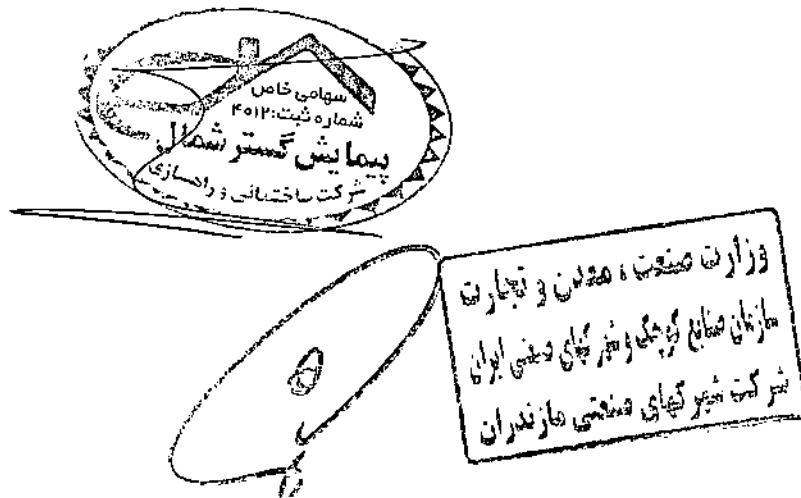 سهامی خاص
شماره ثبت:۴۰۱۲
پیمایش گستر شمال
شرکت ساختمانی و راهسازی
وزارت صنعت ، معدن و تجارت
سازمان صنایع کوچک و شهرکهای صنعتی ایران
شرکت شهرکهای صنعتی مازندران